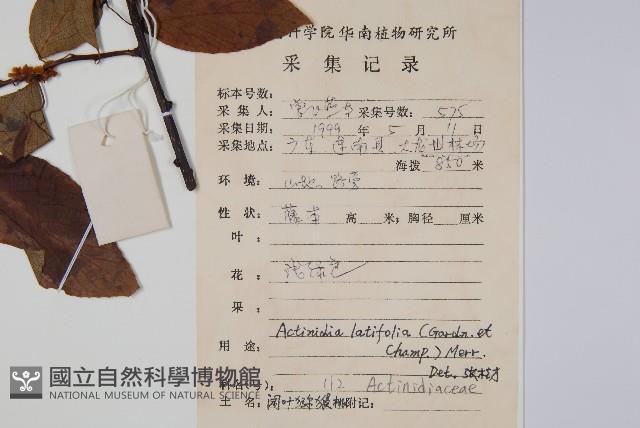 科学院华南植物研究所
采集记录
标本号数:
采集人: 采集号数: 575
采集日期: 1999 年 5 月 11 日
采集地点: 广东 连南县
海拨 850 米
环境: 山地 路旁
性状: 藤本 高 米; 胸径 厘米
叶:
花: 浅绿色
果:
Actinidia latifolia (Gardn. et
用途: Champ.) Merr.
Det.
科名(号): 112 Actinidiaceae
土名: 阔叶猕猴桃 附记:
國立自然科學博物館
NATIONAL MUSEUM OF NATURAL SCIENCE